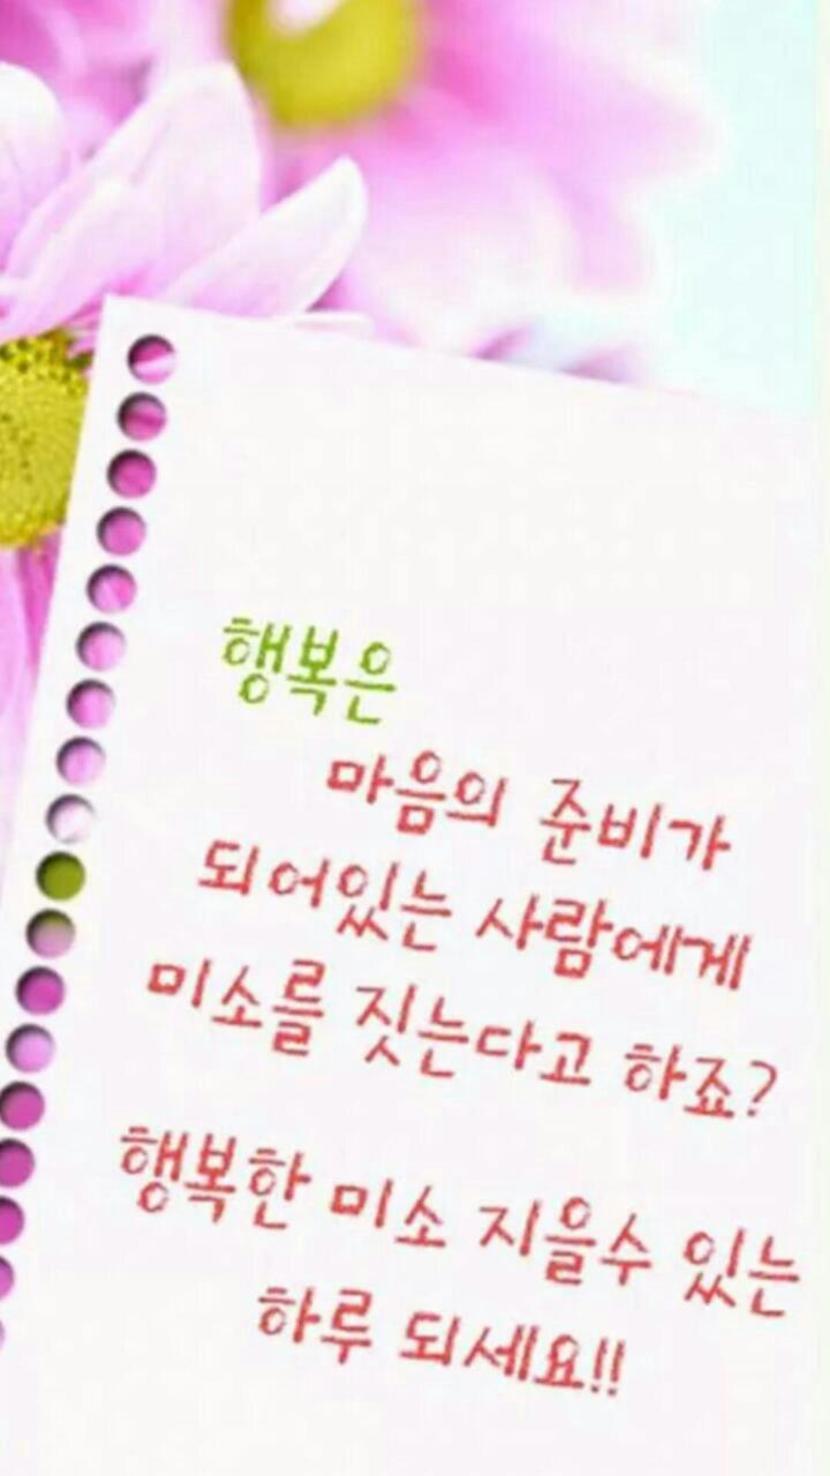 행복은
마음의 준비가
되어있는 사람에게
미소를 짓는다고 하죠?
행복한 미소 지을수 있는
하루 되세요!!